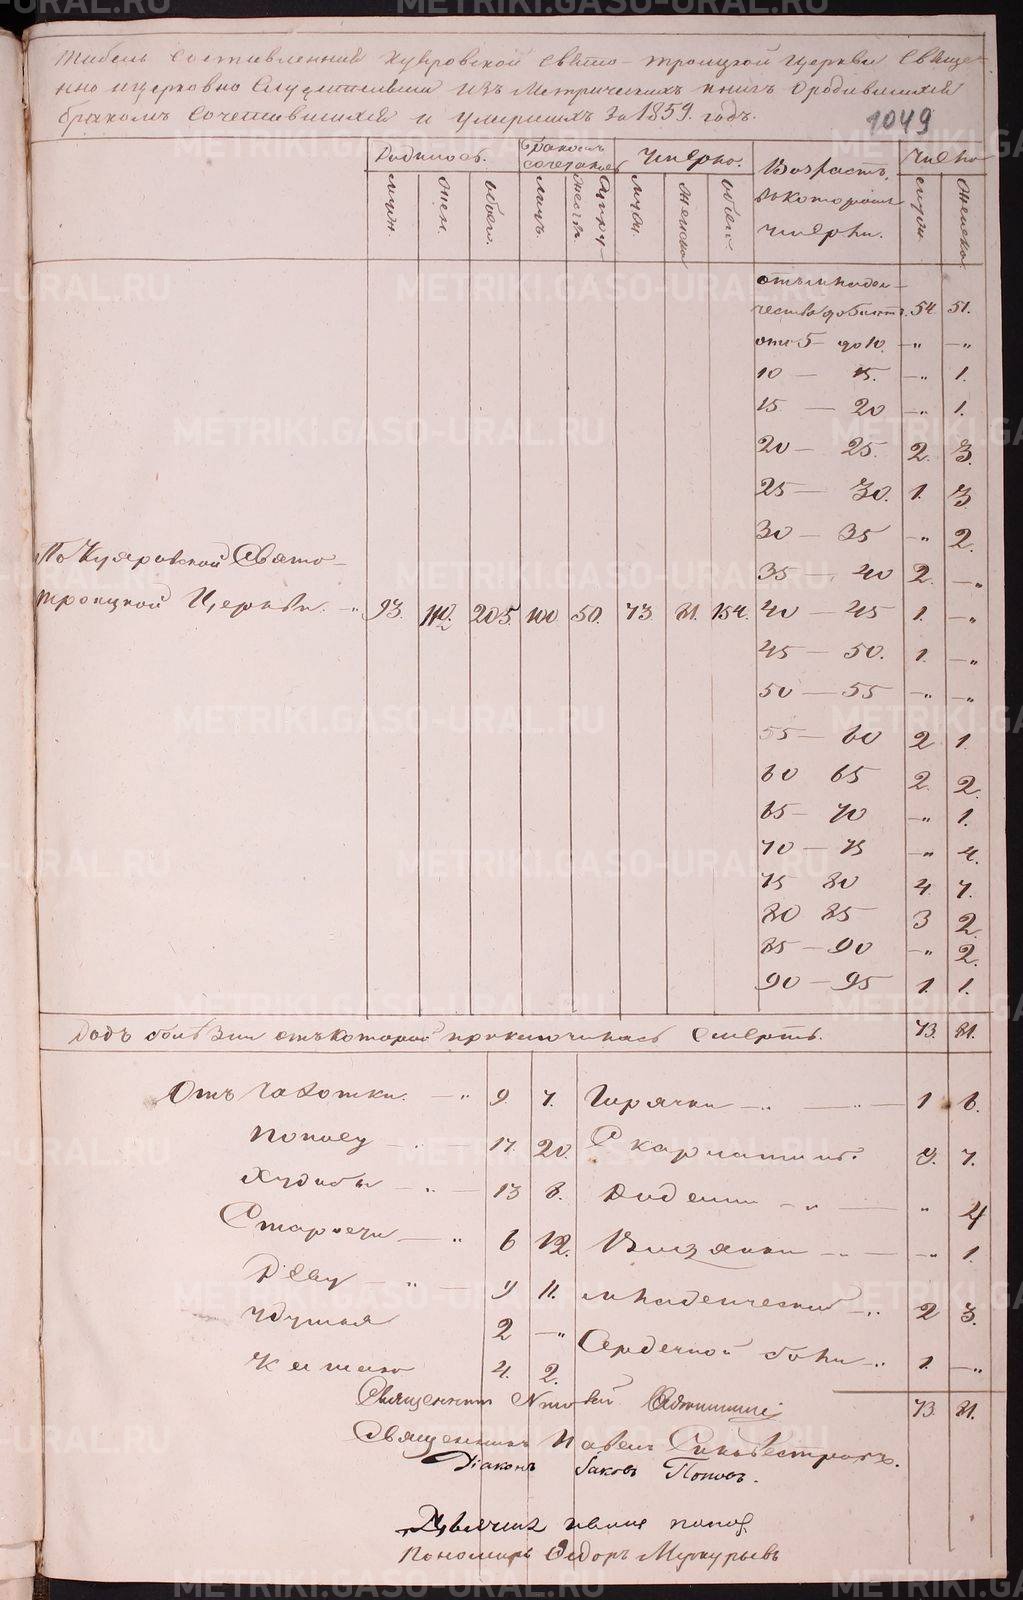 Табель составленный Куяровской Свято-троицкой церкви Священ-
но и церковно Служителями изъ Метрическихъ книгъ о родившихся
бракомъ Сочетавшихся и умершихъ за 1859. годъ.
1049
Родилось. Бракомъ сочеталось Умерло. Возрастъ, въ которомъ умерли. Число
мужи. жен. обоего. лицъ. мужи. женска обоего мужи. женска.
отъ младен-
чества до 5 лет. 54. 51.
отъ 5 до 10. —„ —„
10 — 15. —„ 1.
15 — 20 —„ 1.
20 — 25. 2. 3.
25 — 30. 1. 3
30 — 35 —„ 2.
По Куяровской Свято-
35 — 40 2. —„
троицкой Церкви. —„ 93. 112. 205. 100 50. 73 81. 154. 40 — 45 1. —„
45 — 50. 1. —„
50 — 55 —„ —„
55 — 60 2 1.
60 65 2. 2.
65 — 70 —„ 1.
70 — 75 —„ 4.
75 80 4. 7.
80 85 3 2.
85 — 90 —„ 2.
90 — 95 1. 1.
Родъ болезни отъ которой приключилась Смерть. 73. 81.
Отъ Чахотки. —„ 9. 7. Горячки —„ — 1 6.
Поносу —„ 17. 20. Скарлатины. 9. 7.
Худобы —„ 13 8. Родими —„ „ 4
Старости —„ 6 12. —„ 1.
Реву —„ 9 11. младенческой —„ 2 3.
Удушья 2 —„ Сердечной боли —„ 1. —„
Кашлю 4. 2.
73. 81.
Священникъ
Священникъ Павелъ Сильвестровъ.
Діаконъ Іаковъ Поповъ.
Дьячекъ Попов
Пономарь Федоръ Меркурьевъ
METRIKI.GASO-URAL.RU